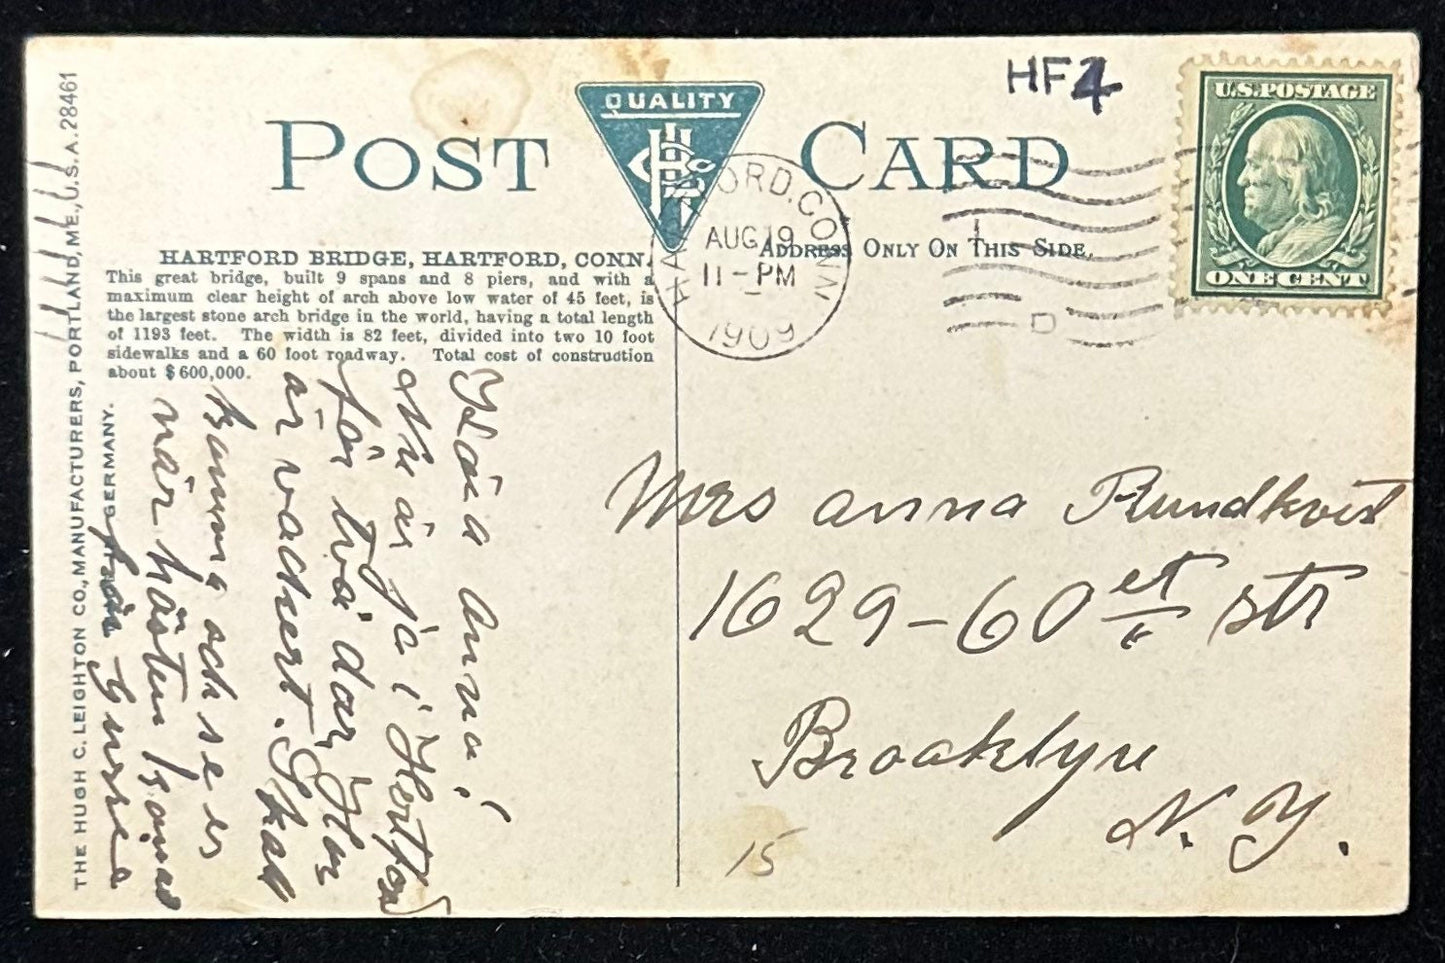 HF4
POST CARD
QUALITY
HARTFORD, CONN.
AUG 19
11-PM
1909
D
U.S. POSTAGE
ONE CENT
HARTFORD BRIDGE, HARTFORD, CONN.
ADDRESS ONLY ON THIS SIDE.
This great bridge, built 9 spans and 8 piers, and with a
maximum clear height of arch above low water of 45 feet, is
the largest stone arch bridge in the world, having a total length
of 1193 feet. The width is 82 feet, divided into two 10 foot
sidewalks and a 60 foot roadway. Total cost of construction
about $600,000.
THE HUGH C. LEIGHTON CO., MANUFACTURERS, PORTLAND, ME., U.S.A. 28461
GERMANY.
Kära Anna!
Nu är ja i Hortford
för två dar, Här
är vackert. Skall
komma och se er
när hösten komer
från
Mrs anna Rundkvist
1629-60 et str
Brooklyn
N. Y.
15